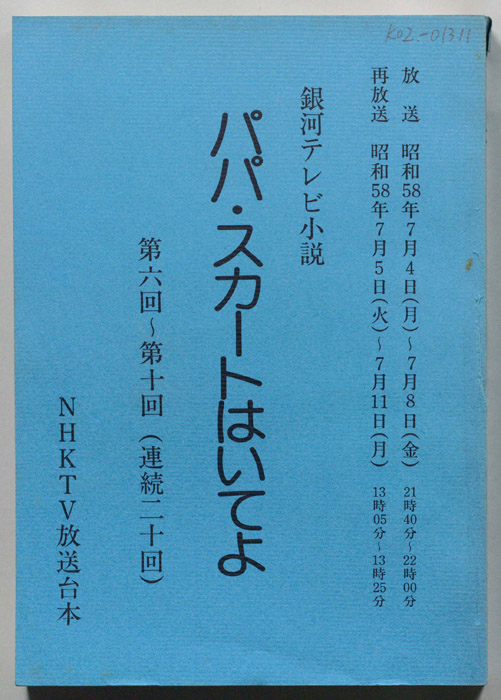 K02-01311
放　送　昭和58年7月4日(月)～7月8日(金)　21時40分～22時00分
再放送　昭和58年7月5日(火)～7月11日(月)　13時05分～13時25分
銀河テレビ小説
パパ・スカートはいてよ
第六回～第十回（連続二十回）
NHKTV放送台本